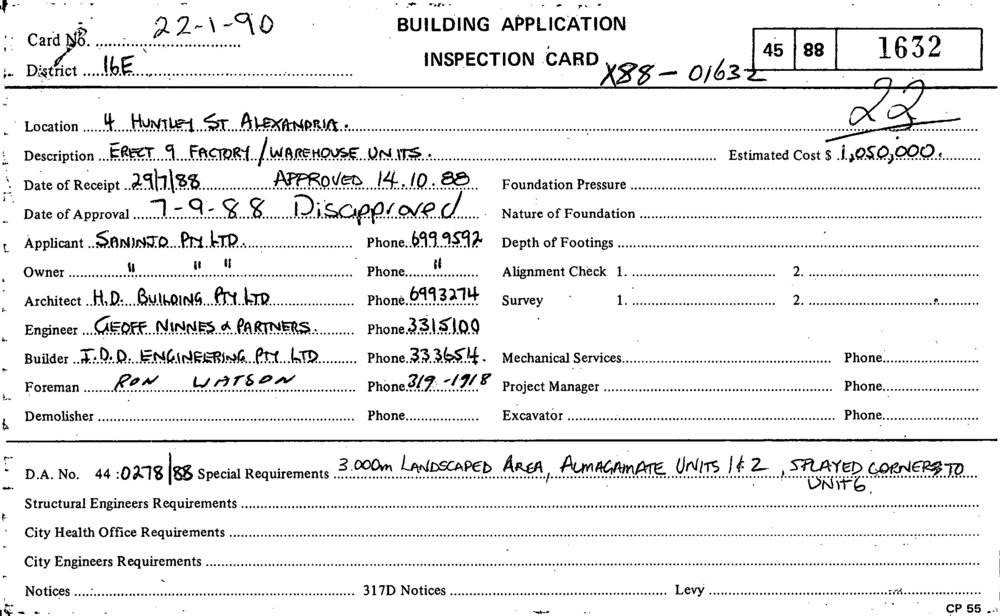 BUILDING APPLICATION
INSPECTION CARD
Card No. 22-1-90
District 16E
45 88 1632
X88-01632
22
Location 4 HUNTLEY ST ALEXANDRIA.
Description ERECT 9 FACTORY / WAREHOUSE UNITS. Estimated Cost $ 1,050,000.
Date of Receipt 29/7/88 APPROVED 14.10.88 Foundation Pressure
Date of Approval 7-9-88 Disapproved Nature of Foundation
Applicant SANINJO PTY LTD. Phone 699 9592 Depth of Footings
Owner " " " Phone " Alignment Check 1. 2.
Architect H.D. BUILDING PTY LTD Phone 6993274 Survey 1. 2.
Engineer GEOFF NINNES & PARTNERS. Phone 3315100
Builder I.D.D. ENGINEERING PTY LTD Phone 333654. Mechanical Services Phone
Foreman RON WATSON Phone 319-1918 Project Manager Phone
Demolisher Phone Excavator Phone
D.A. No. 44:0278/88 Special Requirements 3.000m LANDSCAPED AREA, ALMAGAMATE UNITS 1 & 2, SPLAYED CORNERS TO
UNIT 6.
Structural Engineers Requirements
City Health Office Requirements
City Engineers Requirements
Notices 317D Notices Levy
CP 55